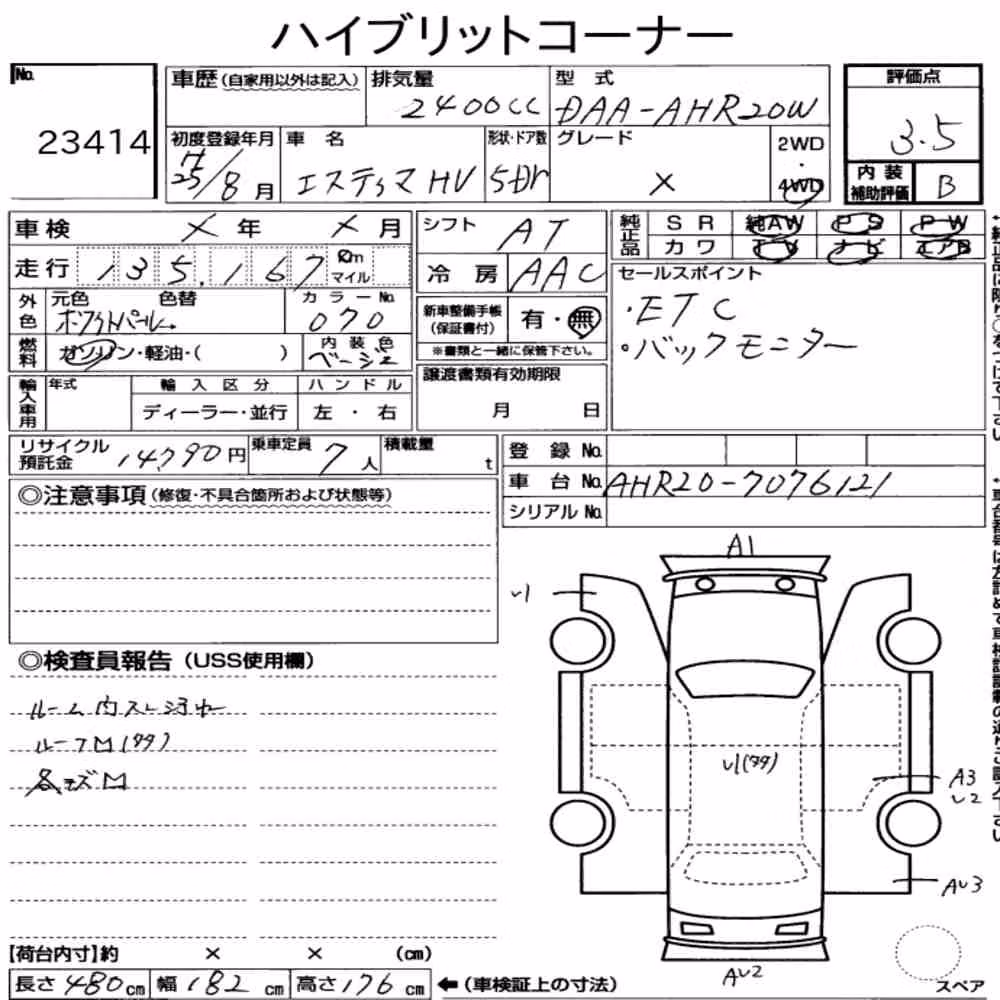 ハイブリットコーナー
No.
23414
車歴(自家用以外は記入)
排気量
2400cc
型 式
DAA-AHR20W
評価点
3.5
初度登録年月
H25/8月
車 名
エスティマHV
形状・ドア数
5Dr
グレード
×
2WD
・
4WD
内 装
補助評価
B
車検 × 年 × 月
シフト
AT
純正品
S R 純AW P S P W
カ ワ T V ナ ビ エアB
走行 135,167 Km
マイル
冷 房 AAC
セールスポイント
・ETC
・バックモニター
外色
元色 色替
ホワイトパール
カラーNo.
070
新車整備手帳
(保証書付)
有・無
※書類と一緒に保管下さい。
燃料
ガソリン・軽油・( )
内装色
ベージュ
譲渡書類有効期限
月 日
輸入車用
年式
輸入区分
ディーラー・並行
ハンドル
左・右
リサイクル
預託金
14,790円
乗車定員
7人
積載量
t
登 録 No.
車 台 No. AHR20-7076121
シリアル No.
◎注意事項(修復・不具合箇所および状態等)
◎検査員報告(USS使用欄)
ルーム内スレ汚れ
ルーフM(タタ)
各キズM
A1
U1
U1(タタ)
A3
U2
AU3
AU2
スペア
【荷台内寸】約 × × (cm)
長さ480cm 幅182cm 高さ176cm
←(車検証上の寸法)